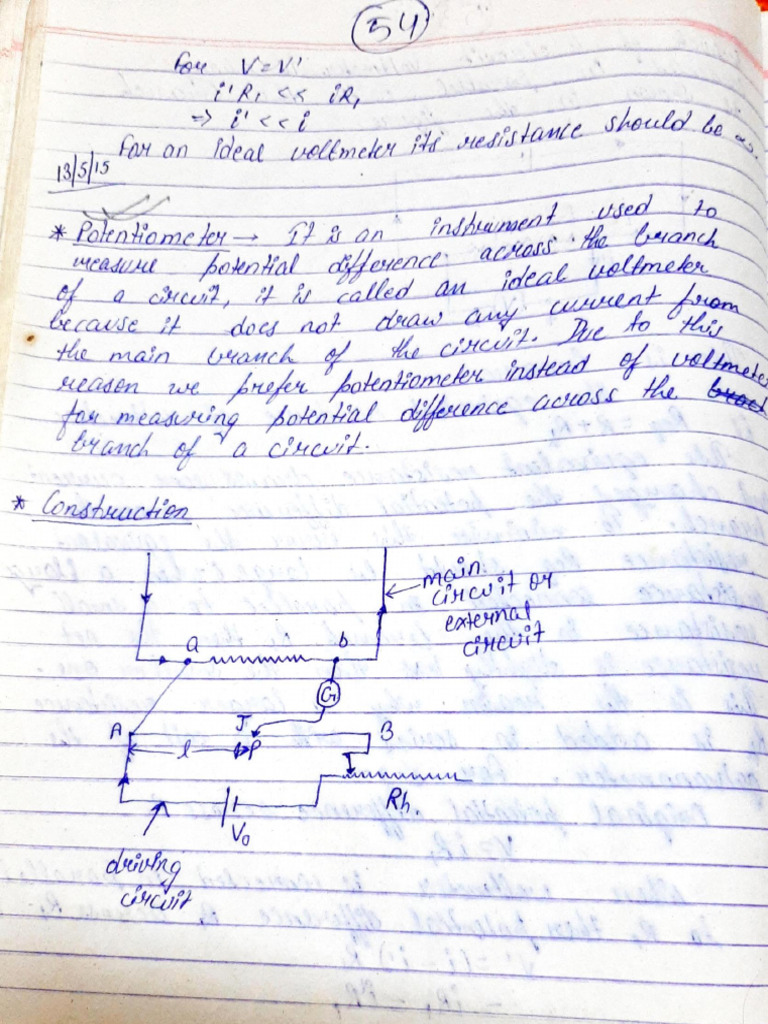 54
For V = V'
i'R₁ << iR₁
⇒ i' << i
For an ideal voltmeter its resistance should be ∞.
13/5/15
* Potentiometer → It is an instrument used to
measure potential difference across the branch
of a circuit, it is called an ideal voltmeter
because it does not draw any current from
the main branch of the circuit. Due to this
reason we prefer potentiometer instead of voltmeter
for measuring potential difference across the
branch of a circuit.
* Construction
main
circuit or
external
circuit
a
b
G
A
J
B
l
P
Rh.
V₀
driving
circuit